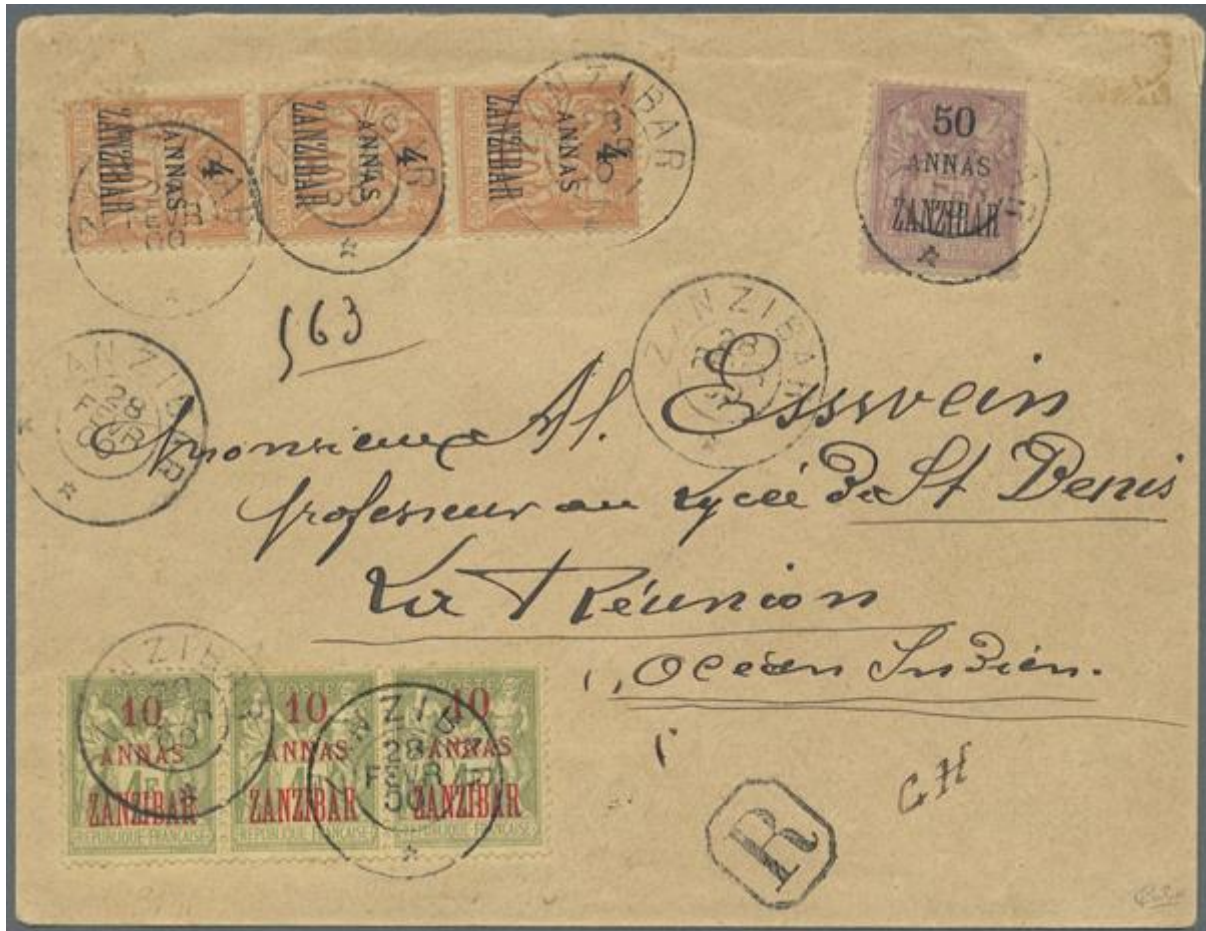 4
ANNAS
ZANZIBAR
4
ANNAS
ZANZIBAR
4
ANNAS
ZANZIBAR
50
ANNAS
ZANZIBAR
563
ZANZIBAR
28
ZANZIBAR
28
FEVR
00
Monsieur Al. Esswein
professeur au Lycée de St Denis
La Réunion
Océan Indien.
10
ANNAS
ZANZIBAR
REPUBLIQUE FRANCAISE
10
ANNAS
ZANZIBAR
REPUBLIQUE FRANCAISE
10
ANNAS
ZANZIBAR
REPUBLIQUE FRANCAISE
ZANZIBAR
28
FEVR
00
R
GH